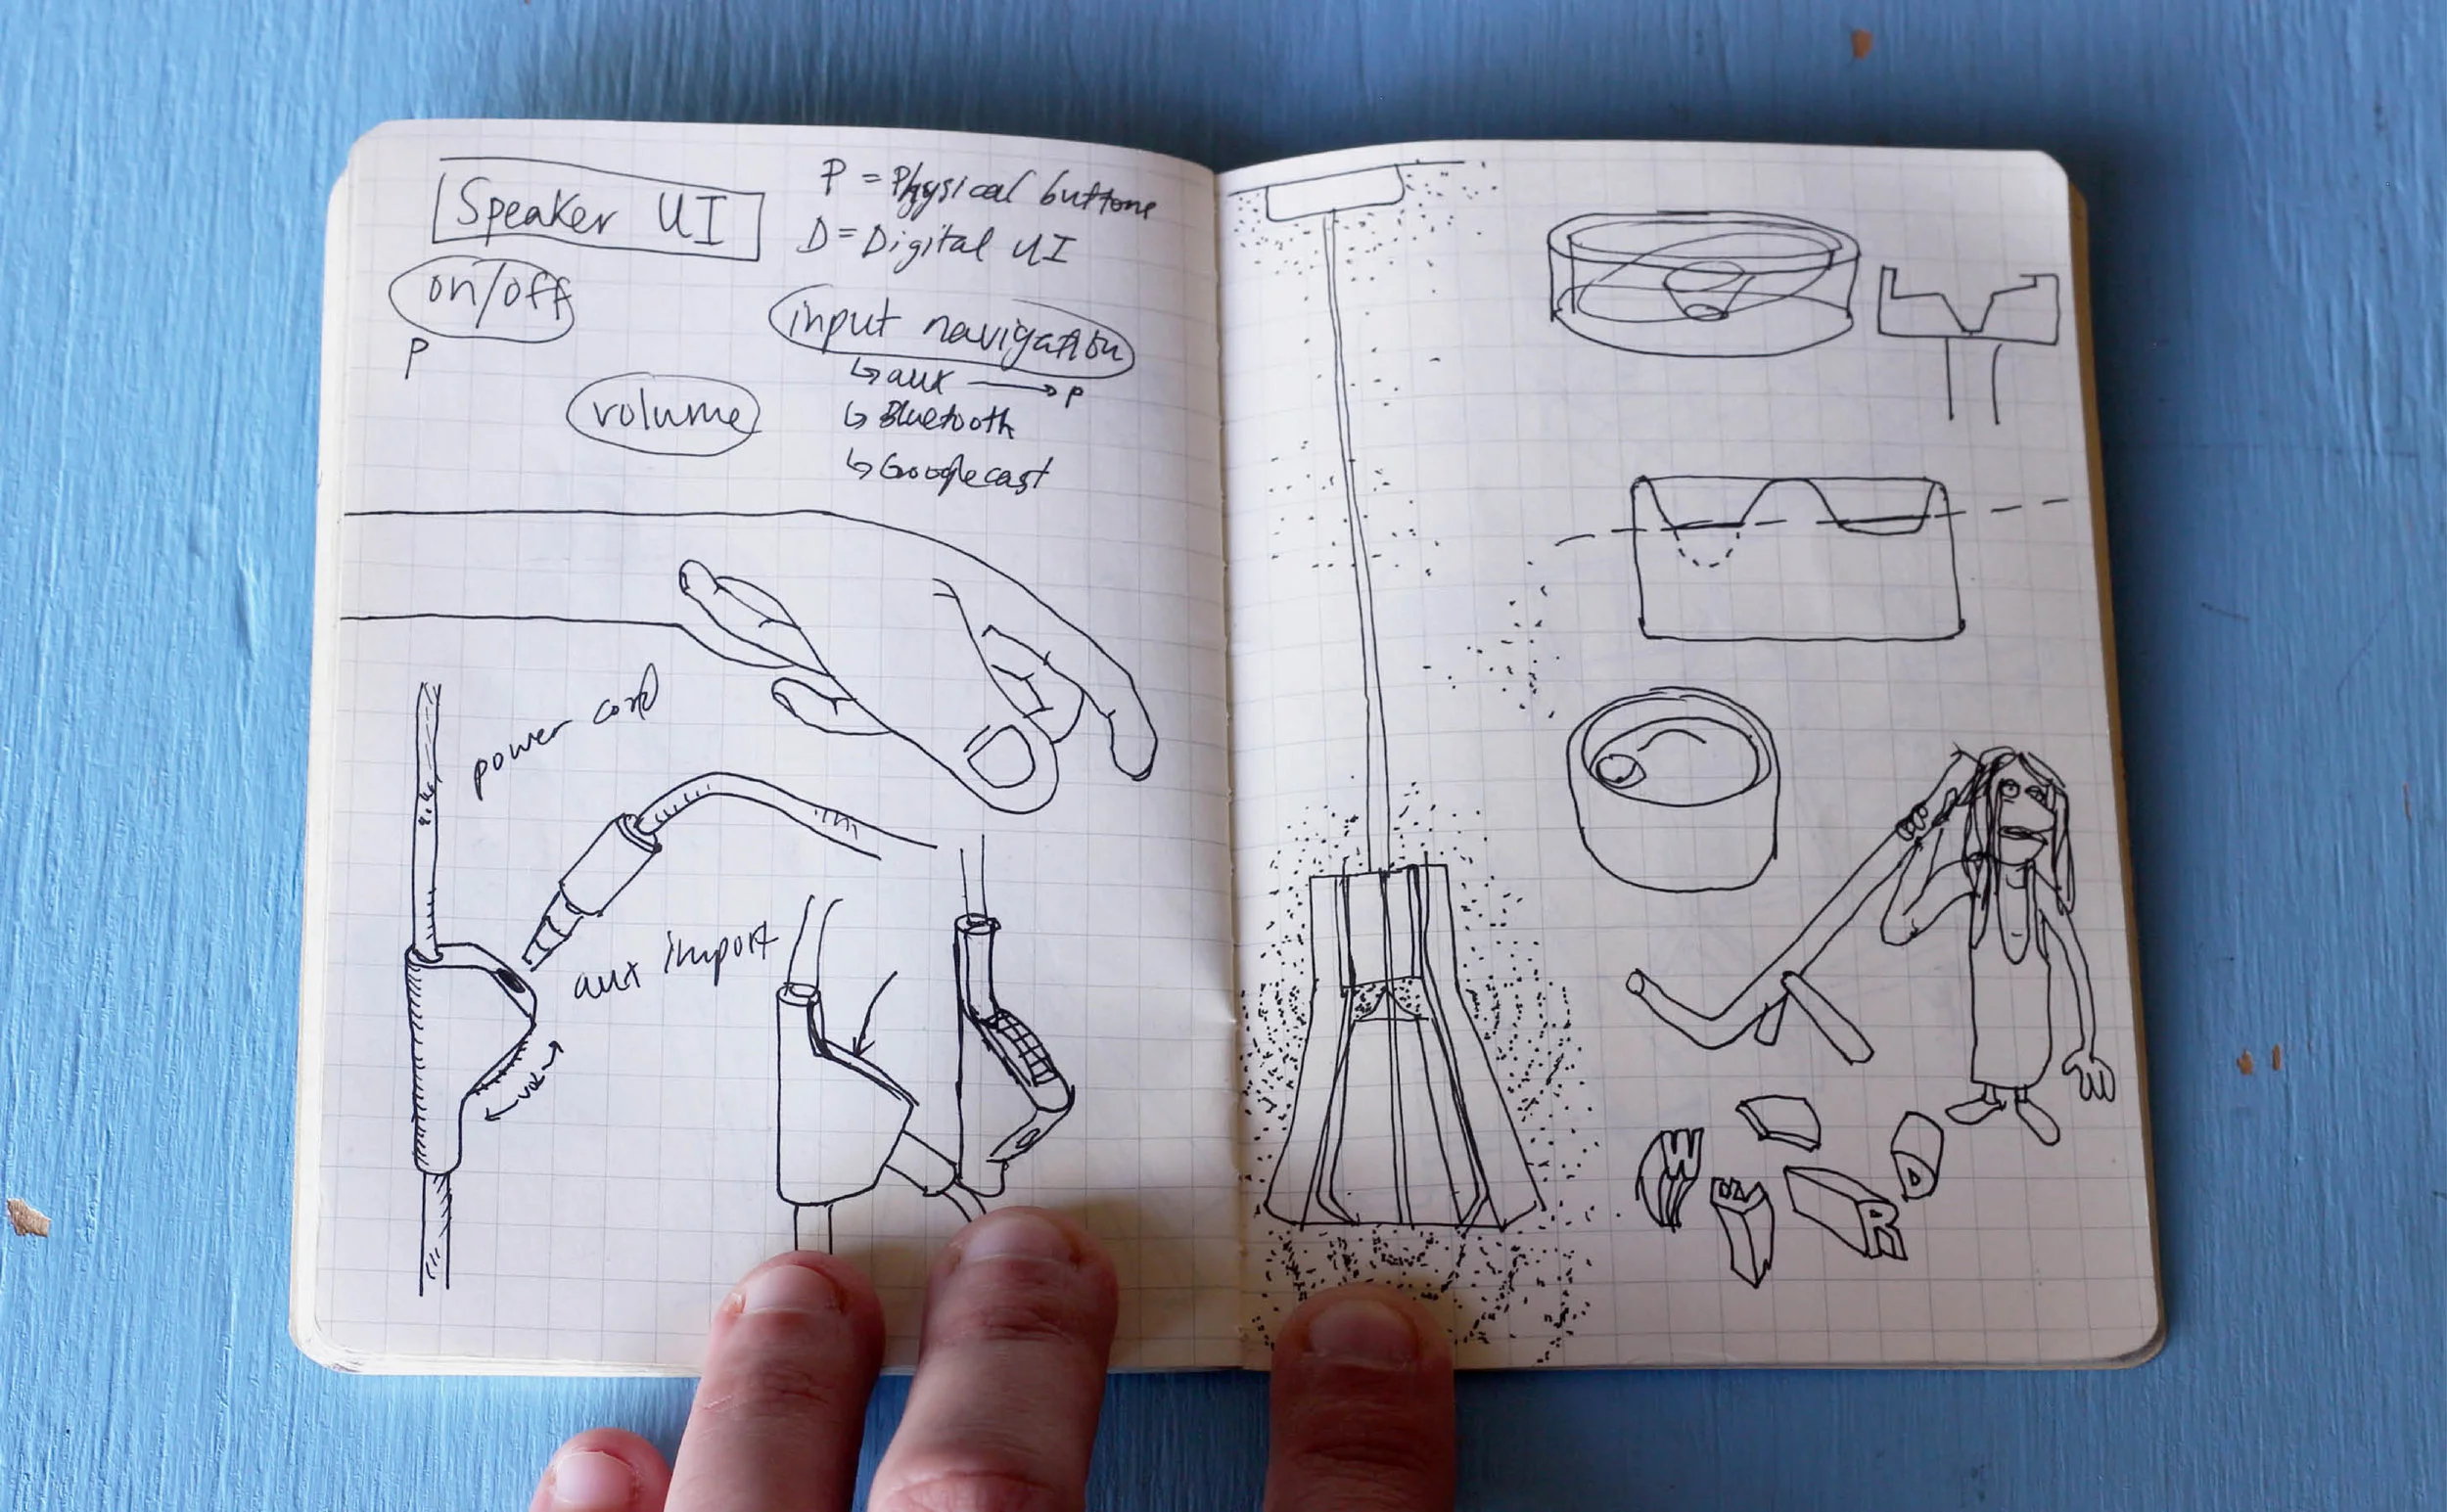 Speaker UI
P = Physical buttons
D = Digital UI
on/off
P
input navigation
↳ aux → P
↳ Bluetooth
↳ Googlecast
volume
power cord
aux import
← vol →
W E I R D